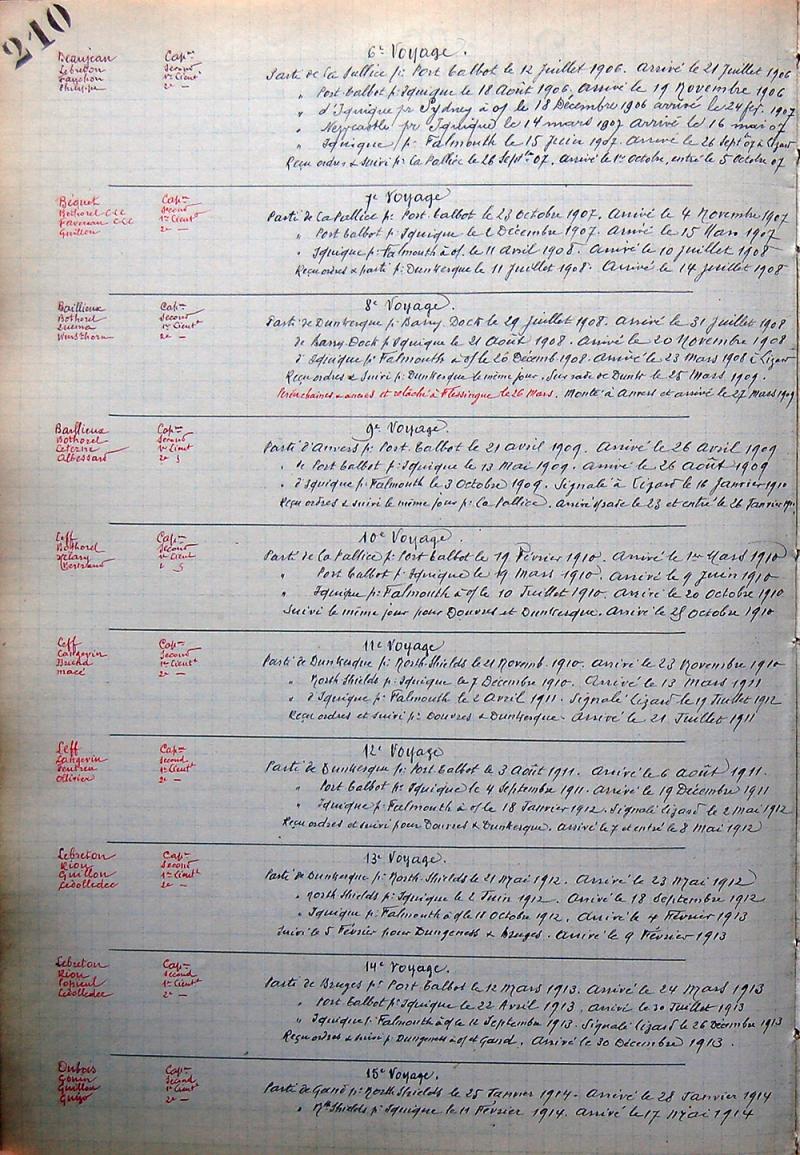 210
6e Voyage.
Beaujean Capne
Lebreton Second
Fauchon 1er Lieutt
Philippe 2e —
Parti de La Pallice p: Port Talbot le 12 Juillet 1906. Arrivé le 21 Juillet 1906
" Port Talbot p: Iquique le 18 Août 1906. arrivé le 19 Novembre 1906
" d'Iquique pr Sydney à of le 18 Décembre 1906 arrivé le 24 fév. 1907
" Newcastle pr Iquique le 14 mars 1907 Arrivé le 16 mai 07
" Iquique p: Falmouth le 15 juin 1907. Arrivé le 26 Septbre 07 à Lizard
Reçu ordres & suivi p: La Pallice le 26 Septbre 07. Arrivé le 1er Octobre, entré le 5 Octobre 07
7e Voyage
Béquet Capne
Bothorel C-L-C Second
Faveriau C-L-C 1er Lieutt
Guillon 2e —
Parti de La Pallice p: Port Talbot le 23 Octobre 1907. Arrivé le 4 Novembre 1907
" Port Talbot p: Iquique le 2 Décembre 1907. Arrivé le 15 Mars 1907
" Iquique p: Falmouth à of. le 11 Avril 1908. Arrivé le 10 Juillet 1908
Reçu ordres & parti p: Dunkerque le 11 Juillet 1908. Arrivé le 14 Juillet 1908
8e Voyage.
Baillieux Capne
Bothorel Second
1er Lieutt
2e —
Parti de Dunkerque p: Barry Dock le 29 Juillet 1908. Arrivé le 31 Juillet 1908
de Barry Dock p: Iquique le 21 Août 1908. Arrivé le 20 Novembre 1908
d'Iquique p: Falmouth à of le 20 Décemb. 1908. Arrivé le 23 Mars 1908 à Lizard
Reçu ordres & Suivi p: Dunkerque le même jour. Sur rade de Dunkr le 25 Mars 1909.
Perdu chaines & ancres et relâché à Flessingue le 26 Mars. Monté à Anvers et arrivé le 27 Mars 1909
9e Voyage.
Baillieux Capne
Bothorel Second
1er Lieut
Albessard 2e
Parti d'Anvers p: Port Talbot le 21 avril 1909. Arrivé le 26 Avril 1909
" de Port Talbot p: Iquique le 13 Mai 1909. arrivé le 26 Août 1909
" d'Iquique p: Falmouth le 3 Octobre 1909. Signalé à Lizard le 16 Janvier 1910
Reçu ordres & suivi le même jour p: La Pallice. Arrivé rade le 23 et entré le 26 Janvier 1910
10e Voyage.
Leff Capne
Bothorel Second
Delary 1er Lieutt
Bertrand 2
Parti de La Pallice p: Port Talbot le 19 Février 1910. Arrivé le 1er Mars 1910
" Port Talbot p: Iquique le 19 Mars 1910. Arrivé le 9 Juin 1910
" Iquique p: Falmouth à of le 10 Juillet 1910. Arrivé le 20 Octobre 1910
Suivi le même jour pour Douvres et Dunkerque. Arrivé le 25 Octobre 1910
11e Voyage
Leff Capne
Langevin Second
Briend 1er Lieutt
Macé 2e —
Parti de Dunkerque p: North Shields le 21 Novemb. 1910. Arrivé le 23 Novembre 1910
" North Shields p: Iquique le 7 Décembre 1910. Arrivé le 13 Mars 1911
" d'Iquique p: Falmouth le 2 Avril 1911. Signalé Lizard le 19 Juillet 1912
Reçu ordres et suivi p: Douvres & Dunkerque. Arrivé le 21 Juillet 1911
12e Voyage
Leff Capne
Langevin Second
1er Lieutt
Ollivier 2e —
Parti de Dunkerque p: Port Talbot le 3 Août 1911. Arrivé le 6 août 1911.
" Port Talbot p: Iquique le 4 Septembre 1911. Arrivé le 19 Décembre 1911
" Iquique p: Falmouth à of le 18 Janvier 1912. Signalé Lizard le 2 mai 1912
Reçu ordres et suivi pour Douvres & Dunkerque. Arrivé le 7 et entré le 8 Mai 1912
13e Voyage.
Lebreton Capne
Rion Second
Guillon 1er Lieutt
Ledolledec 2e —
Parti de Dunkerque p: North Shields le 21 Mai 1912. Arrivé le 23 Mai 1912
" North Shields p: Iquique le 2 Juin 1912. Arrivé le 18 Septembre 1912
" Iquique p: Falmouth à of le 11 Octobre 1912. Arrivé le 4 Février 1913
Suivi le 5 Février pour Dungeness & Bruges. Arrivé le 9 Février 1913
14e Voyage.
Lebreton Capne
Rion Second
1er Lieutt
Ledolledec 2e —
Parti de Bruges pr Port Talbot le 12 Mars 1913. Arrivé le 24 Mars 1913
" Port Talbot p: Iquique le 22 Avril 1913. Arrivé le 30 Juillet 1913
" Iquique p: Falmouth à of le 11 Septembre 1913. Signalé Lizard le 26 Décembre 1913
Reçu ordres & suivi p: Dungeness à of et Gand. Arrivé le 30 Décembre 1913.
15e Voyage.
Dubois Capne
Gouin Second
Guillon 1er Lieutt
Guizo 2e —
Parti de Gand p: North Shields le 25 Janvier 1914. Arrivé le 28 Janvier 1914
" Nth Shields p: Iquique le 11 Février 1914. Arrivé le 17 Mai 1914